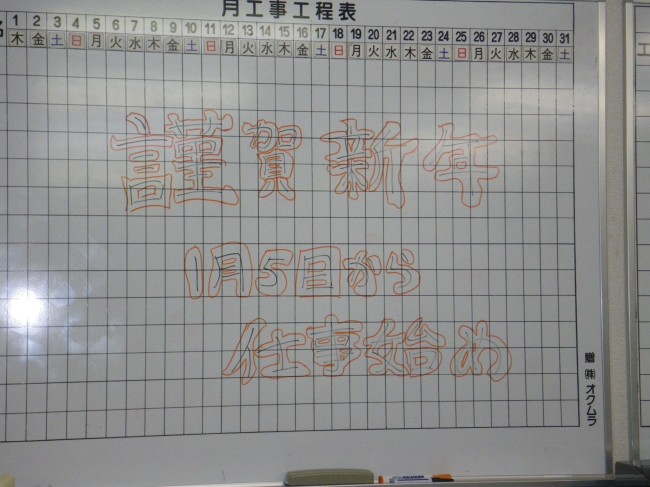 月工事工程表
1 2 3 4 5 6 7 8 9 10 11 12 13 14 15 16 17 18 19 20 21 22 23 24 25 26 27 28 29 30 31
木 金 土 日 月 火 水 木 金 土 日 月 火 水 木 金 土 日 月 火 水 木 金 土 日 月 火 水 木 金 土
謹賀新年
1月5日から
仕事始め
贈 ㈱オクムラ
工